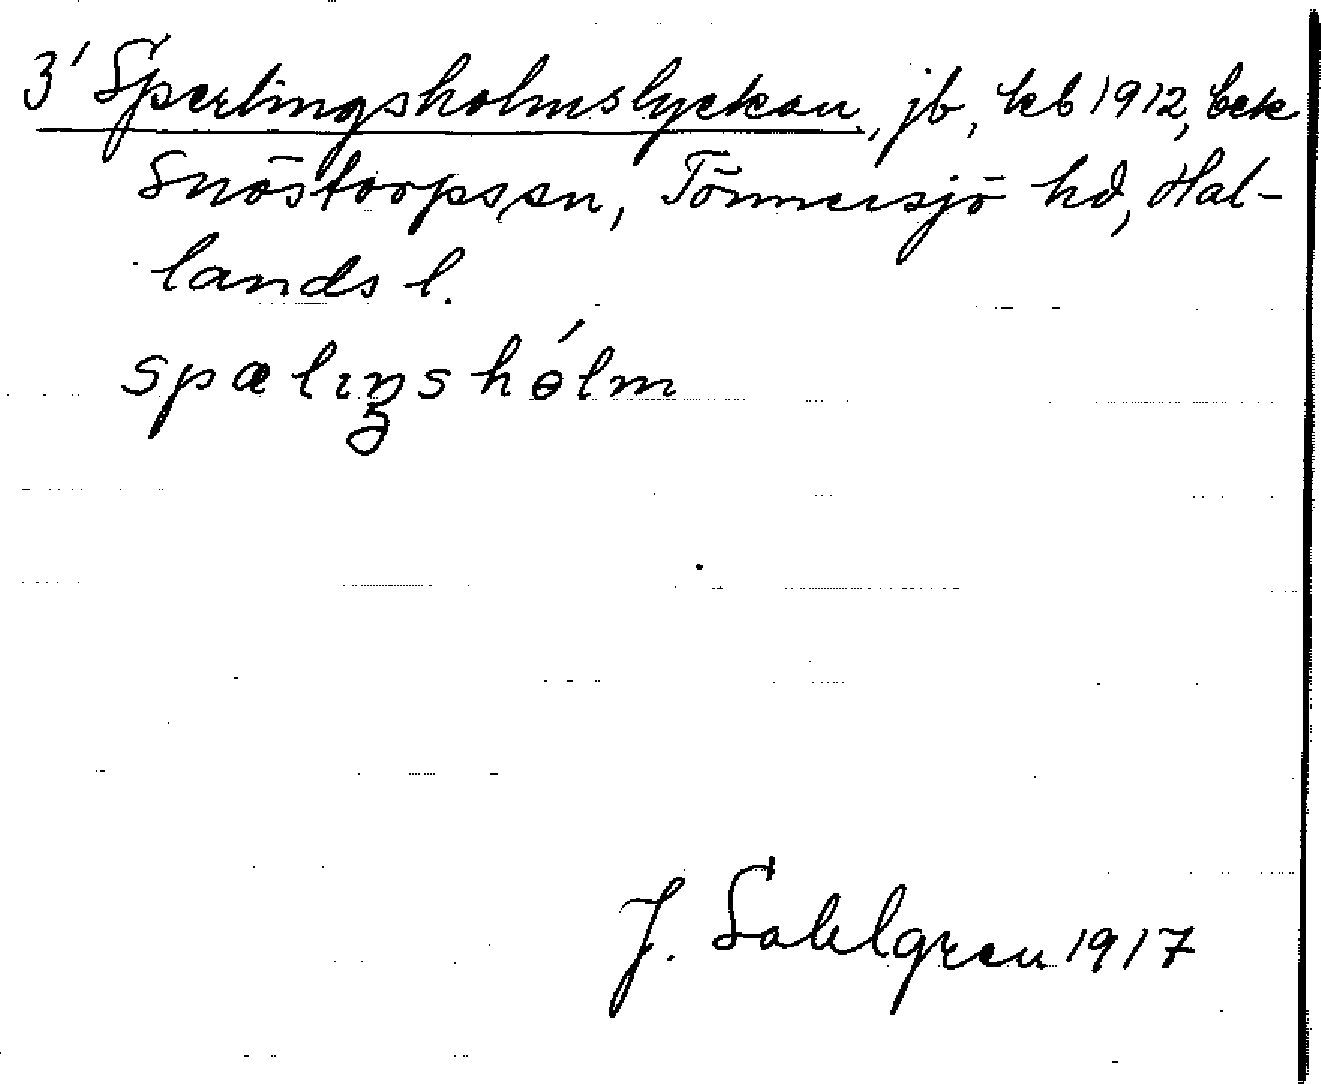 3' Sperlingsholmslyckan, jb, kb 1912, bek
Snöstorps sn, Tönnersjö hd, Hal-
lands l.
spæliŋshólm
J. Sahlgren 1917